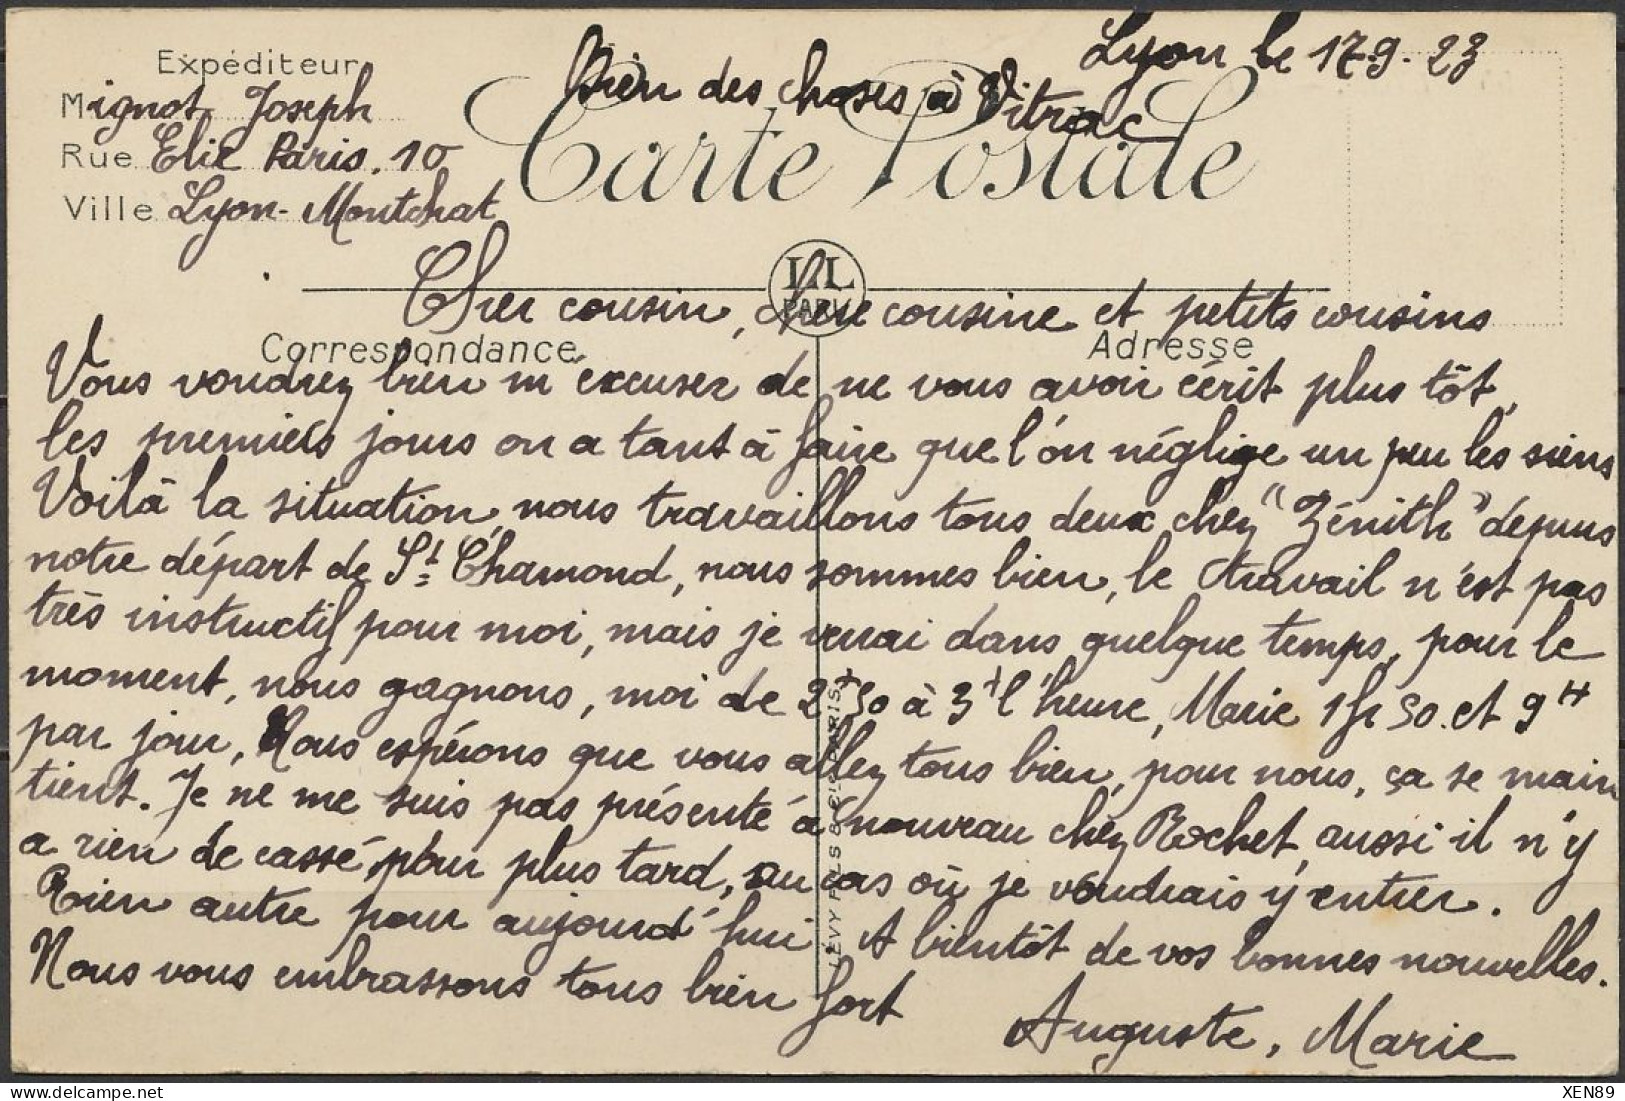 Lyon le 17-9-23
Bien des choses à Vitrac
Expéditeur
Mignot Joseph
Rue Elie Paris. 10
Ville Lyon-Montchat
Carte Postale
LL
PARIS
Cher cousin, chère cousine et petits cousins
Correspondance
Adresse
Vous voudrez bien m'excuser de ne vous avoir écrit plus tôt,
les premiers jours on a tant à faire que l'on néglige un peu les siens
Voilà la situation, nous travaillons tous deux chez "Zénith" depuis
notre départ de St Chamond, nous sommes bien, le travail n'est pas
très instructif pour moi, mais je verrai dans quelque temps, pour le
moment, nous gagnons, moi de 2f50 à 3f l'heure, Marie 1fr50 et 9H
par jour, Nous espérons que vous allez tous bien, pour nous, ça se main
tient. Je ne me suis pas présenté à nouveau chez Rochet, aussi il n'y
a rien de cassé, pour plus tard, au cas où je voudrais y entrer.
Rien autre pour aujourd'hui A bientôt de vos bonnes nouvelles.
Nous vous embrassons tous bien fort
Auguste, Marie
LÉVY FILS & Cie PARIS
XEN89